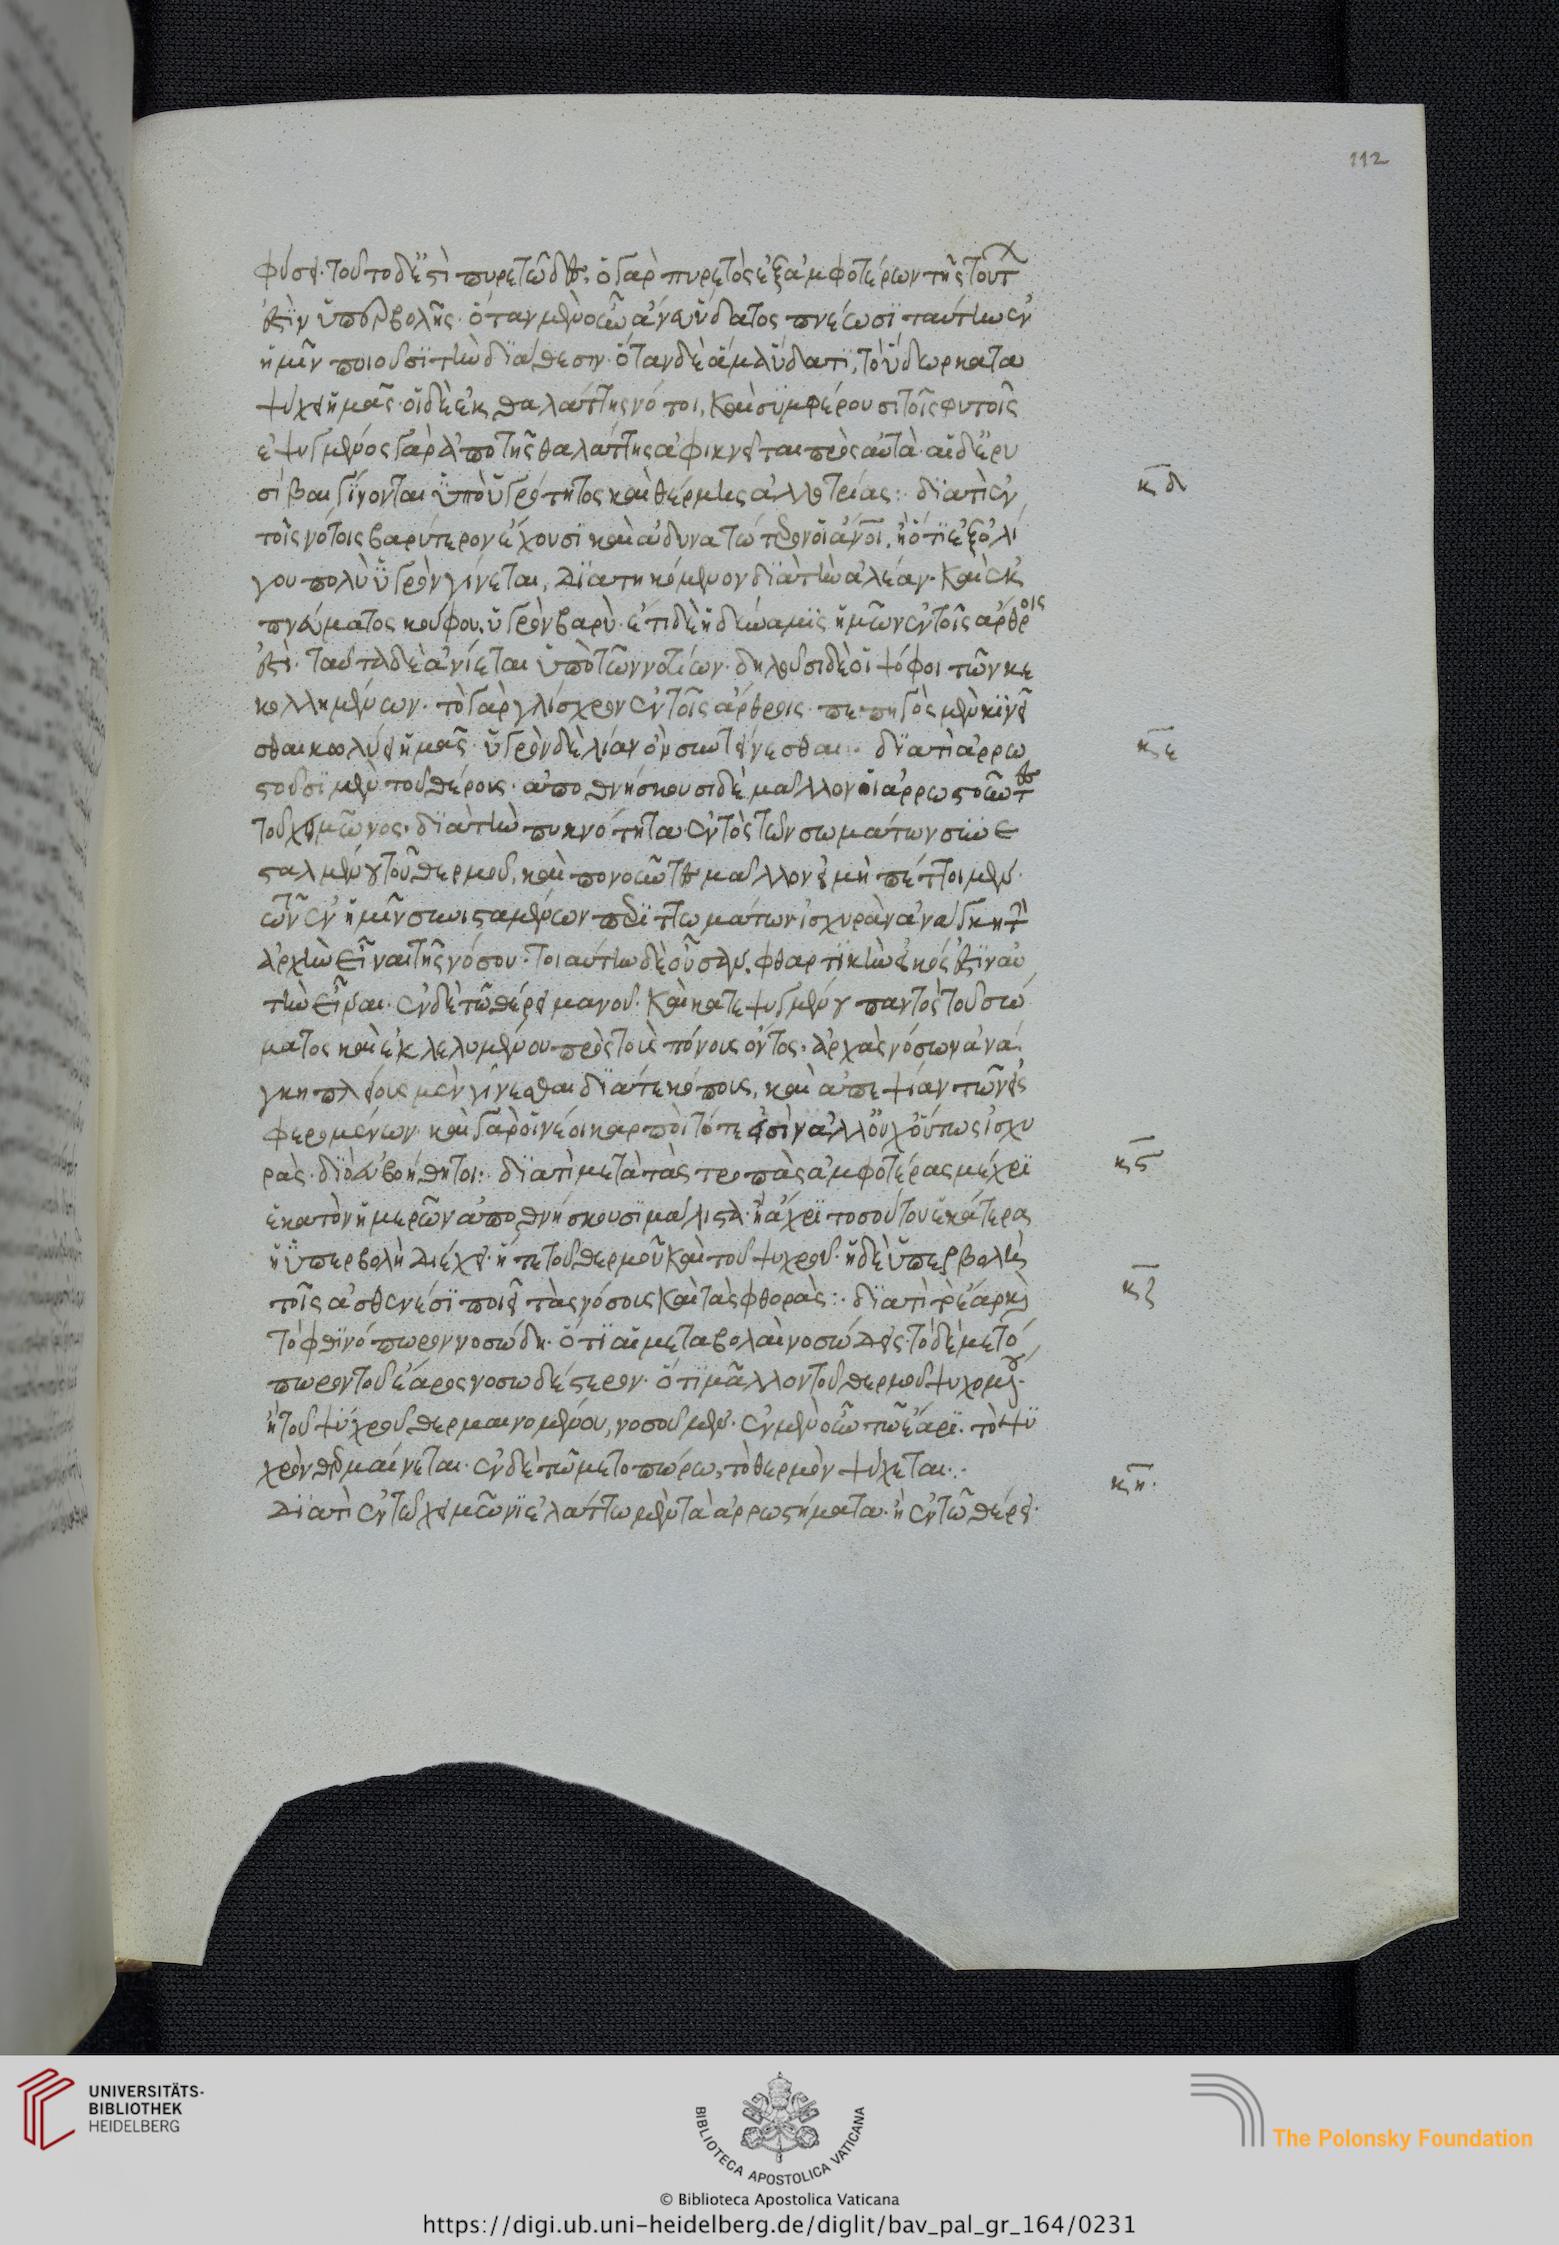 112
φύσει. τοῦτο δ' ἐστὶ πυρετῶδες. ὁ γὰρ πυρετὸς ἐξ ἀμφοτέρων τῆς τούτων
ἐστὶν ὑπερβολῆς. ὅταν μὲν οὖν ἄνευ ὕδατος πνέωσι ταύτην ἐν
ἡμῖν ποιοῦσι τὴν διάθεσιν. ὅταν δὲ ἅμα ὕδατι, τὸ ὕδωρ κατα
ψύχει ἡμᾶς. οἱ δὲ ἐκ θαλάττης νότοι, καὶ συμφέρουσι τοῖς φυτοῖς
ἐψυγμένος γὰρ ἀπὸ τῆς θαλάττης ἀφικνεῖται πρὸς αὐτὰ. αἱ δ' ἐρυ
σίβαι γίνονται ὑπὸ ὑγρότητος καὶ θέρμης ἀλλοτρίας: διατὶ ἐν
κδ
τοῖς νότοις βαρύτερον ἔχουσι καὶ ἀδυνατώτερον οἱ ἄνοι. ἢ ὅτι ἐξ ὀλί
γου πολὺ ὑγρὸν γίνεται, διατηκόμενον διὰ τὴν ἀλέαν. καὶ ἐκ
πνεύματος κούφου, ὑγρὸν βαρὺ. ἔτι δὲ ἡ δύναμις ἡμῶν ἐν τοῖς ἄρθροις
ἐστὶ. ταῦτα δὲ ἀνίεται ὑπὸ τῶν νοτίων. δηλοῦσι δὲ οἱ ψόφοι τῶν κε
κολλημένων. τὸ γὰρ γλίσχρον ἐν τοῖς ἄρθροις πεπηγὸς μὲν κινεῖ
σθαι κωλύει ἡμᾶς. ὑγρὸν δὲ λίαν ὂν συντείνεσθαι: διατὶ ἀρρω
κε
στοῦσι μὲν τοῦ θέρους. ἀποθνήσκουσι δὲ μᾶλλον οἱ ἀρρωστοῦντες
τοῦ χειμῶνος. διὰ τὴν πυκνότητα ἐντὸς τῶν σωμάτων συνε
σταλμένου τοῦ θερμοῦ, καὶ πονοῦντες μᾶλλον εἰ μὴ πέττοιμεν
τῶν ἐν ἡμῖν συνισταμένων περιττωμάτων ἰσχυρὰν ἀνάγκη τὴν
ἀρχὴν εἶναι τῆς νόσου. τοιαύτην δὲ οὖσαν, φθαρτικὴν εἰκός ἐστιν αὐ
τὴν εἶναι. ἐν δὲ τῶ θέρει μανοῦ. καὶ κατεψυγμένου παντὸς τοῦ σώ
ματος καὶ ἐκλελυμένου πρὸς τοὺς πόνους ὄντος. ἀρχὰς νόσων ἀνά
γκη πλείους μὲν γίνεσθαι διά τε κόπους, καὶ ἀπεψίαν τῶν εἰς
φερομένων καὶ γὰρ οἱ νέοι καρποὶ τότε εἰσὶν ἀλλ' οὐχ οὕτως ἰσχυ
ρὰς. διὸ εὐβοήθητοι: διατὶ μετὰ τὰς τροπὰς ἀμφοτέρας μέχρι
κϛ
ἑκατὸν ἡμερῶν ἀποθνήσκουσι μάλιστα. ἢ ἄχρι τοσούτου ἑκάτερα
ἡ ὑπερβολὴ διέχει. ἥ τε τοῦ θερμοῦ καὶ τοῦ ψυχροῦ. ἡ δὲ ὑπερβολὴ
τοῖς ἀσθενέσι ποιεῖ τὰς νόσους καὶ τὰς φθοράς: διατὶ τὸ ἔαρ καὶ
κζ
τὸ φθινόπωρον νοσώδη. ὅτι αἱ μεταβολαὶ νοσώδεις. τὸ δὲ μετό
πωρον τοῦ ἔαρος νοσωδέστερον. ὅτι μᾶλλον τοῦ θερμοῦ ψυχομένου
ἢ τοῦ ψύχρου θερμαινομένου, νοσοῦμεν. ἐν μὲν οὖν τῶ ἔαρι. τὸ ψυ
χρὸν θερμαίνεται. ἐν δὲ τῶ μετοπώρω, τὸ θερμὸν ψύχεται.
κη
Διατὶ ἐν τῶ χειμῶνι ἐλάττω μὲν τὰ ἀρρωστήματα. ἢ ἐν τῶ θέρει.
UNIVERSITÄTS-
BIBLIOTHEK
HEIDELBERG
BIBLIOTECA APOSTOLICA VATICANA
The Polonsky Foundation
© Biblioteca Apostolica Vaticana
https://digi.ub.uni-heidelberg.de/diglit/bav_pal_gr_164/0231